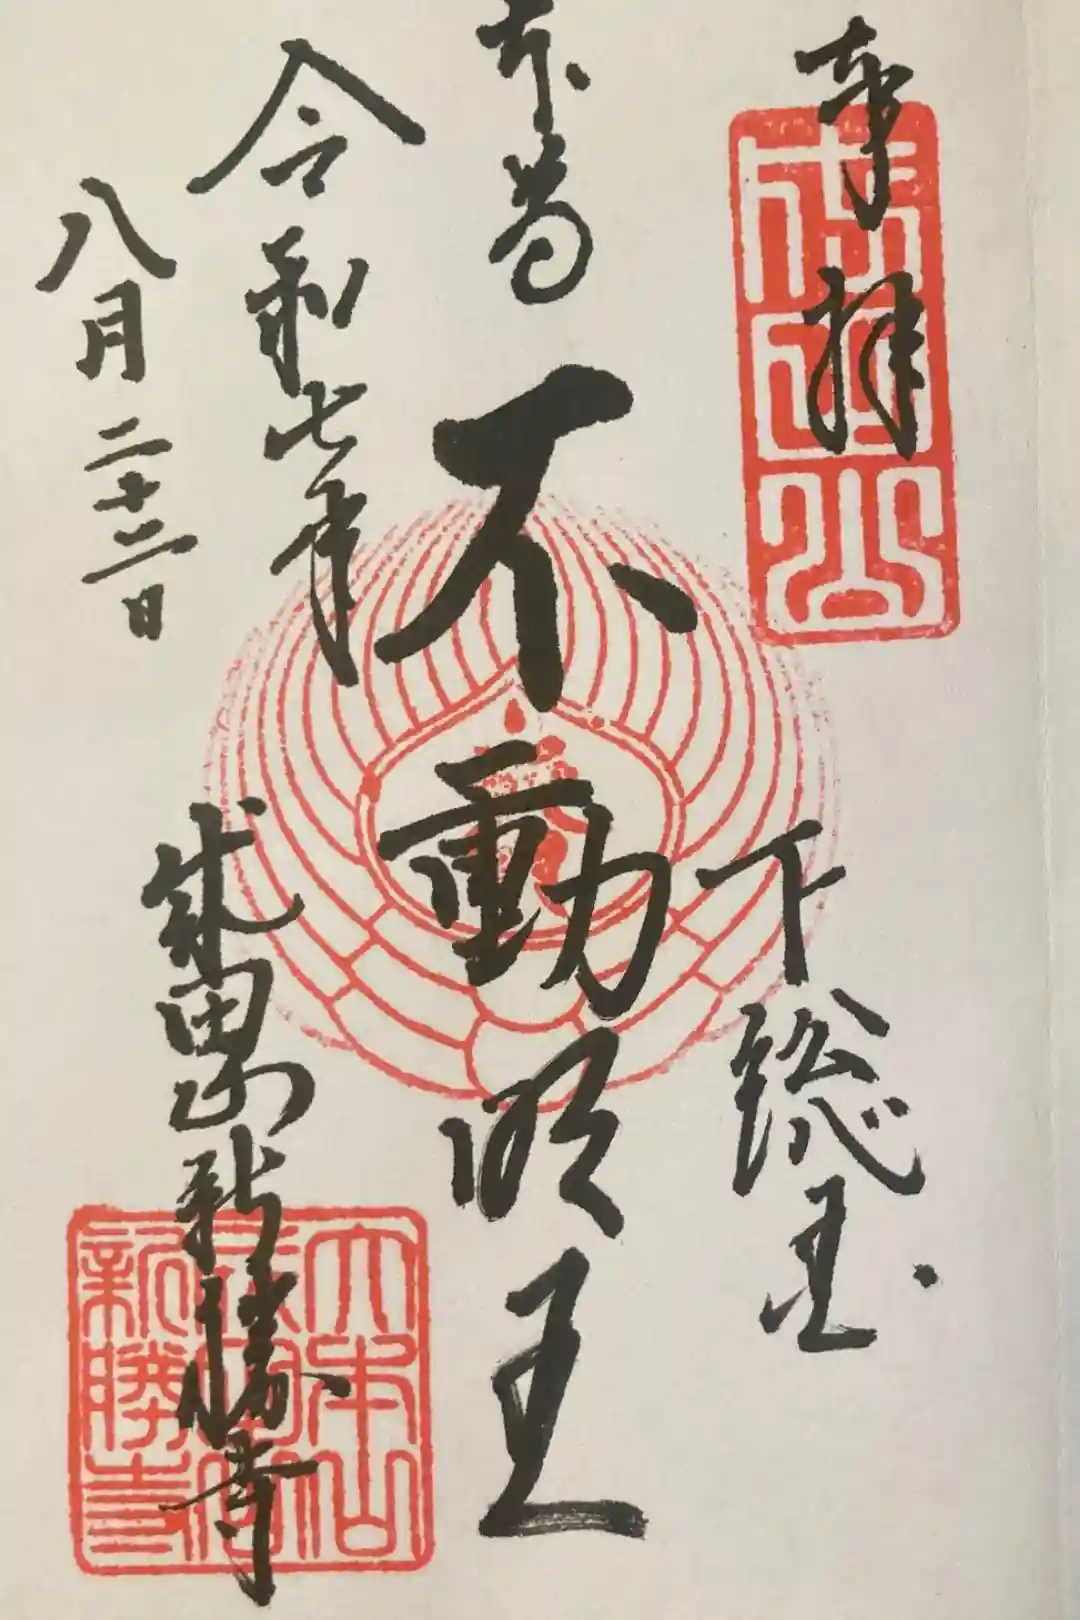 奉拝
成田山
下総国
本尊
不動明王
令和七年
八月二十二日
成田山新勝寺
大本山
成田山
新勝寺